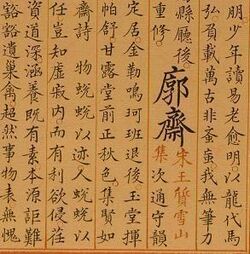 朋少年讀易老愈明。龍代馬
負載萬古非蚤虱我無筆力
縣廳後。
重修。
廓齋
宋王質雪山
集次通守韻
定居金勒鳴珂班退後玉堂揮
帕舒甘露堂前正秋色集賢如
齋詩 物蜕蜕以迹人蜕蜕以
任豈知虛寂內而有利欲侵莊
資道深涵養既有素本源詎難
豁豁遺巢禽超然事物表無愧